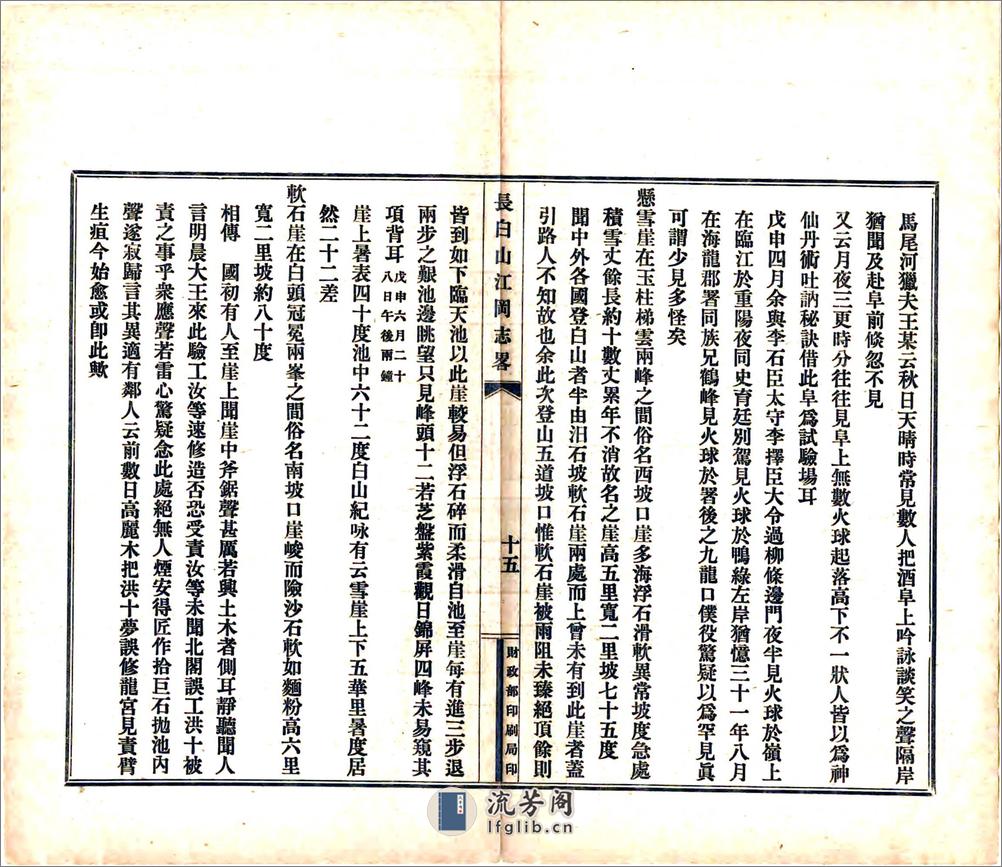 馬尾河獵夫王某云秋日天晴時常見數人把酒阜上吟詠談笑之聲隔岸
猶聞及赴阜前倐忽不見
又云月夜三更時分往往見阜上無數火球起落高下不一狀人皆以爲神
仙丹術吐訥秘訣借此阜爲試驗場耳
戊申四月余與李石臣太守李擇臣大令過柳條邊門夜半見火球於嶺上
在臨江於重陽夜同史育廷別駕見火球於鴨綠左岸猶憶三十一年八月
在海龍郡署同族兄鶴峰見火球於署後之九龍口僕役驚疑以爲罕見眞
可謂少見多怪矣
懸雪崖在玉柱梯雲兩峰之間俗名西坡口崖多海浮石滑軟異常坡度急處
積雪丈餘長約十數丈累年不消故名之崖高五里寬二里坡七十五度
聞中外各國登白山者半由汨石坡軟石崖兩處而上曾未有到此崖者蓋
引路人不知故也余此次登山五道坡口惟軟石崖被雨阻未臻絕頂餘則
長白山江岡志畧
十五
財政部印刷局印
皆到如下臨天池以此崖較易但浮石碎而柔滑自池至崖每有進三步退
兩步之艱池邊眺望只見峰頭十二若芝盤紫霞觀日錦屏四峰未易窺其
項背耳戊申六月二十
八日午後兩鐘
崖上暑表四十度池中六十二度白山紀咏有云雪崖上下五華里暑度居
然二十二差
軟石崖在白頭冠冕兩峯之間俗名南坡口崖峻而險沙石軟如麵粉高六里
寬二里坡約八十度
相傳 國初有人至崖上聞崖中斧鋸聲甚厲若興土木者側耳靜聽聞人
言明晨大王來此驗工汝等速修造否恐受責汝等未聞北閣誤工洪十被
責之事乎衆應聲若雷心驚疑念此處絕無人煙安得匠作拾巨石拋池內
聲遂寂歸言其異適有鄰人云前數日高麗木把洪十夢誤修龍宮見責臂
生疽今始愈或卽此歟
流芳阁
lfglib.cn